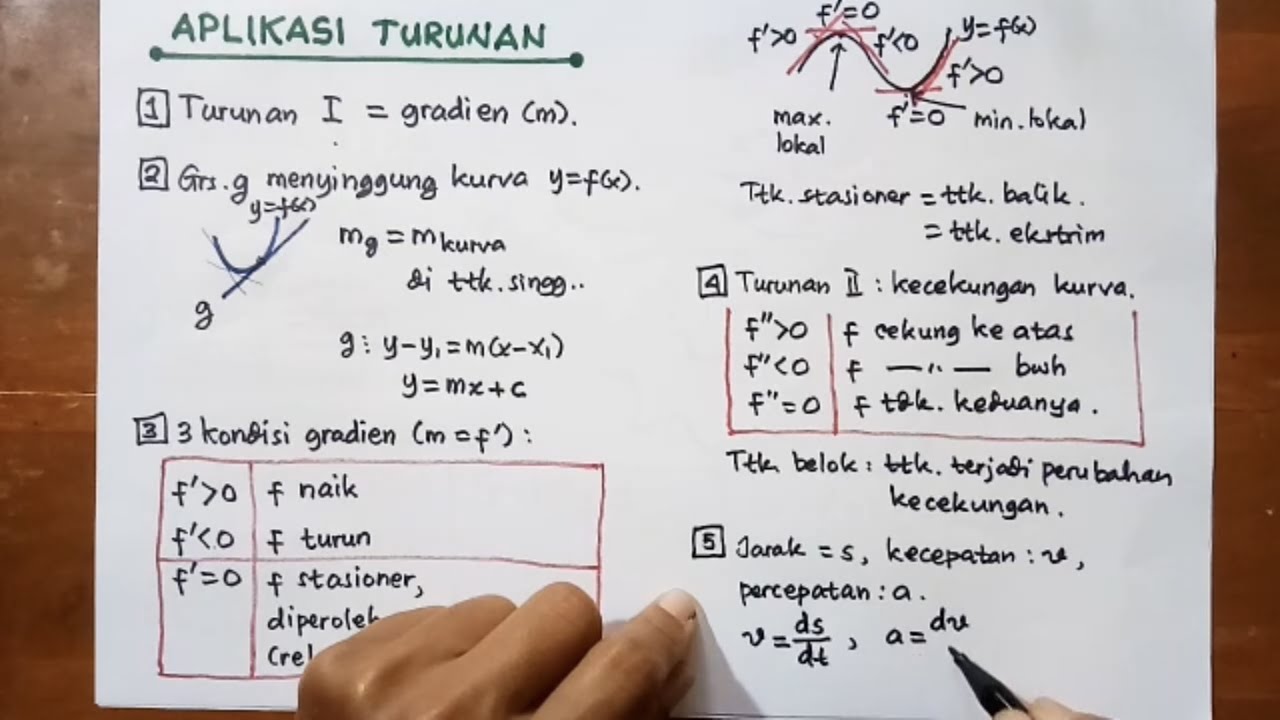 APLIKASI TURUNAN
1 Turunan I = gradien (m).
2 Grs. g menyinggung kurva y=f(x).
y=f(x)
g
mg = mkurva
di ttk. singg..
g: y-y₁=m(x-x₁)
y=mx+c
3 3 kondisi gradien (m=f'):
f'>0 f naik
f'<0 f turun
f'=0 f stasioner,
f'=0
f'>0
f'<0
y=f(x)
f'>0
max.
lokal
f'=0
min. lokal
Ttk. stasioner = ttk. balik.
= ttk. ekstrim
4 Turunan II : kecekungan kurva.
f">0 f cekung ke atas
f"<0 f —"— bwh
f"=0 f tdk. keduanya.
Ttk. belok : ttk. terjadi perubahan
kecekungan.
5 Jarak = s, kecepatan : v,
percepatan : a.
v = ds/dt , a = dv